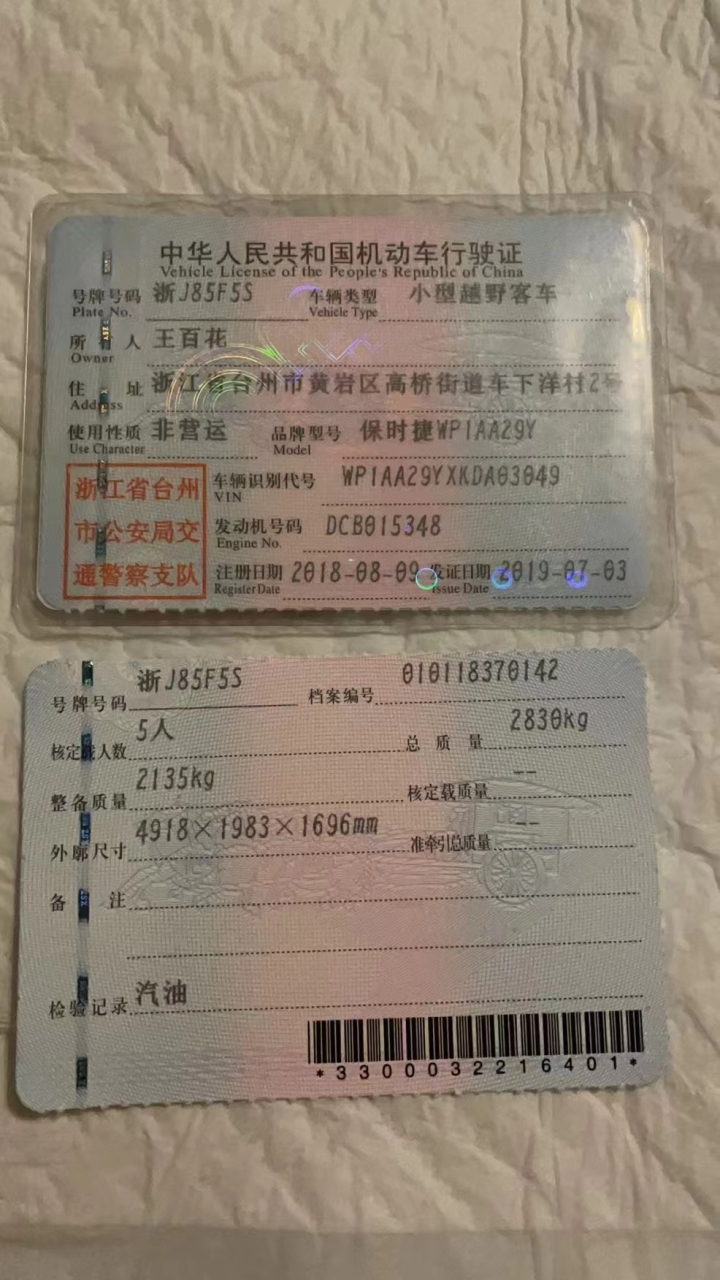 中华人民共和国机动车行驶证
Vehicle License of the People's Republic of China
号牌号码 浙J85F5S 车辆类型 小型越野客车
Plate No. Vehicle Type
所有人 王百花
Owner
住址 浙江省台州市黄岩区高桥街道车下洋村2号
Address
使用性质 非营运 品牌型号 保时捷WP1AA29Y
Use Character Model
浙江省台州
市公安局交
通警察支队
车辆识别代号 WP1AA29YXKDA03049
VIN
发动机号码 DCB015348
Engine No.
注册日期 2018-08-09 发证日期 2019-07-03
Register Date Issue Date
号牌号码 浙J85F5S 档案编号 010118370142
核定载人数 5人 总质量 2830kg
整备质量 2135kg 核定载质量 --
外廓尺寸 4918×1983×1696mm 准牵引总质量 --
备注
检验记录 汽油
*3300032216401*